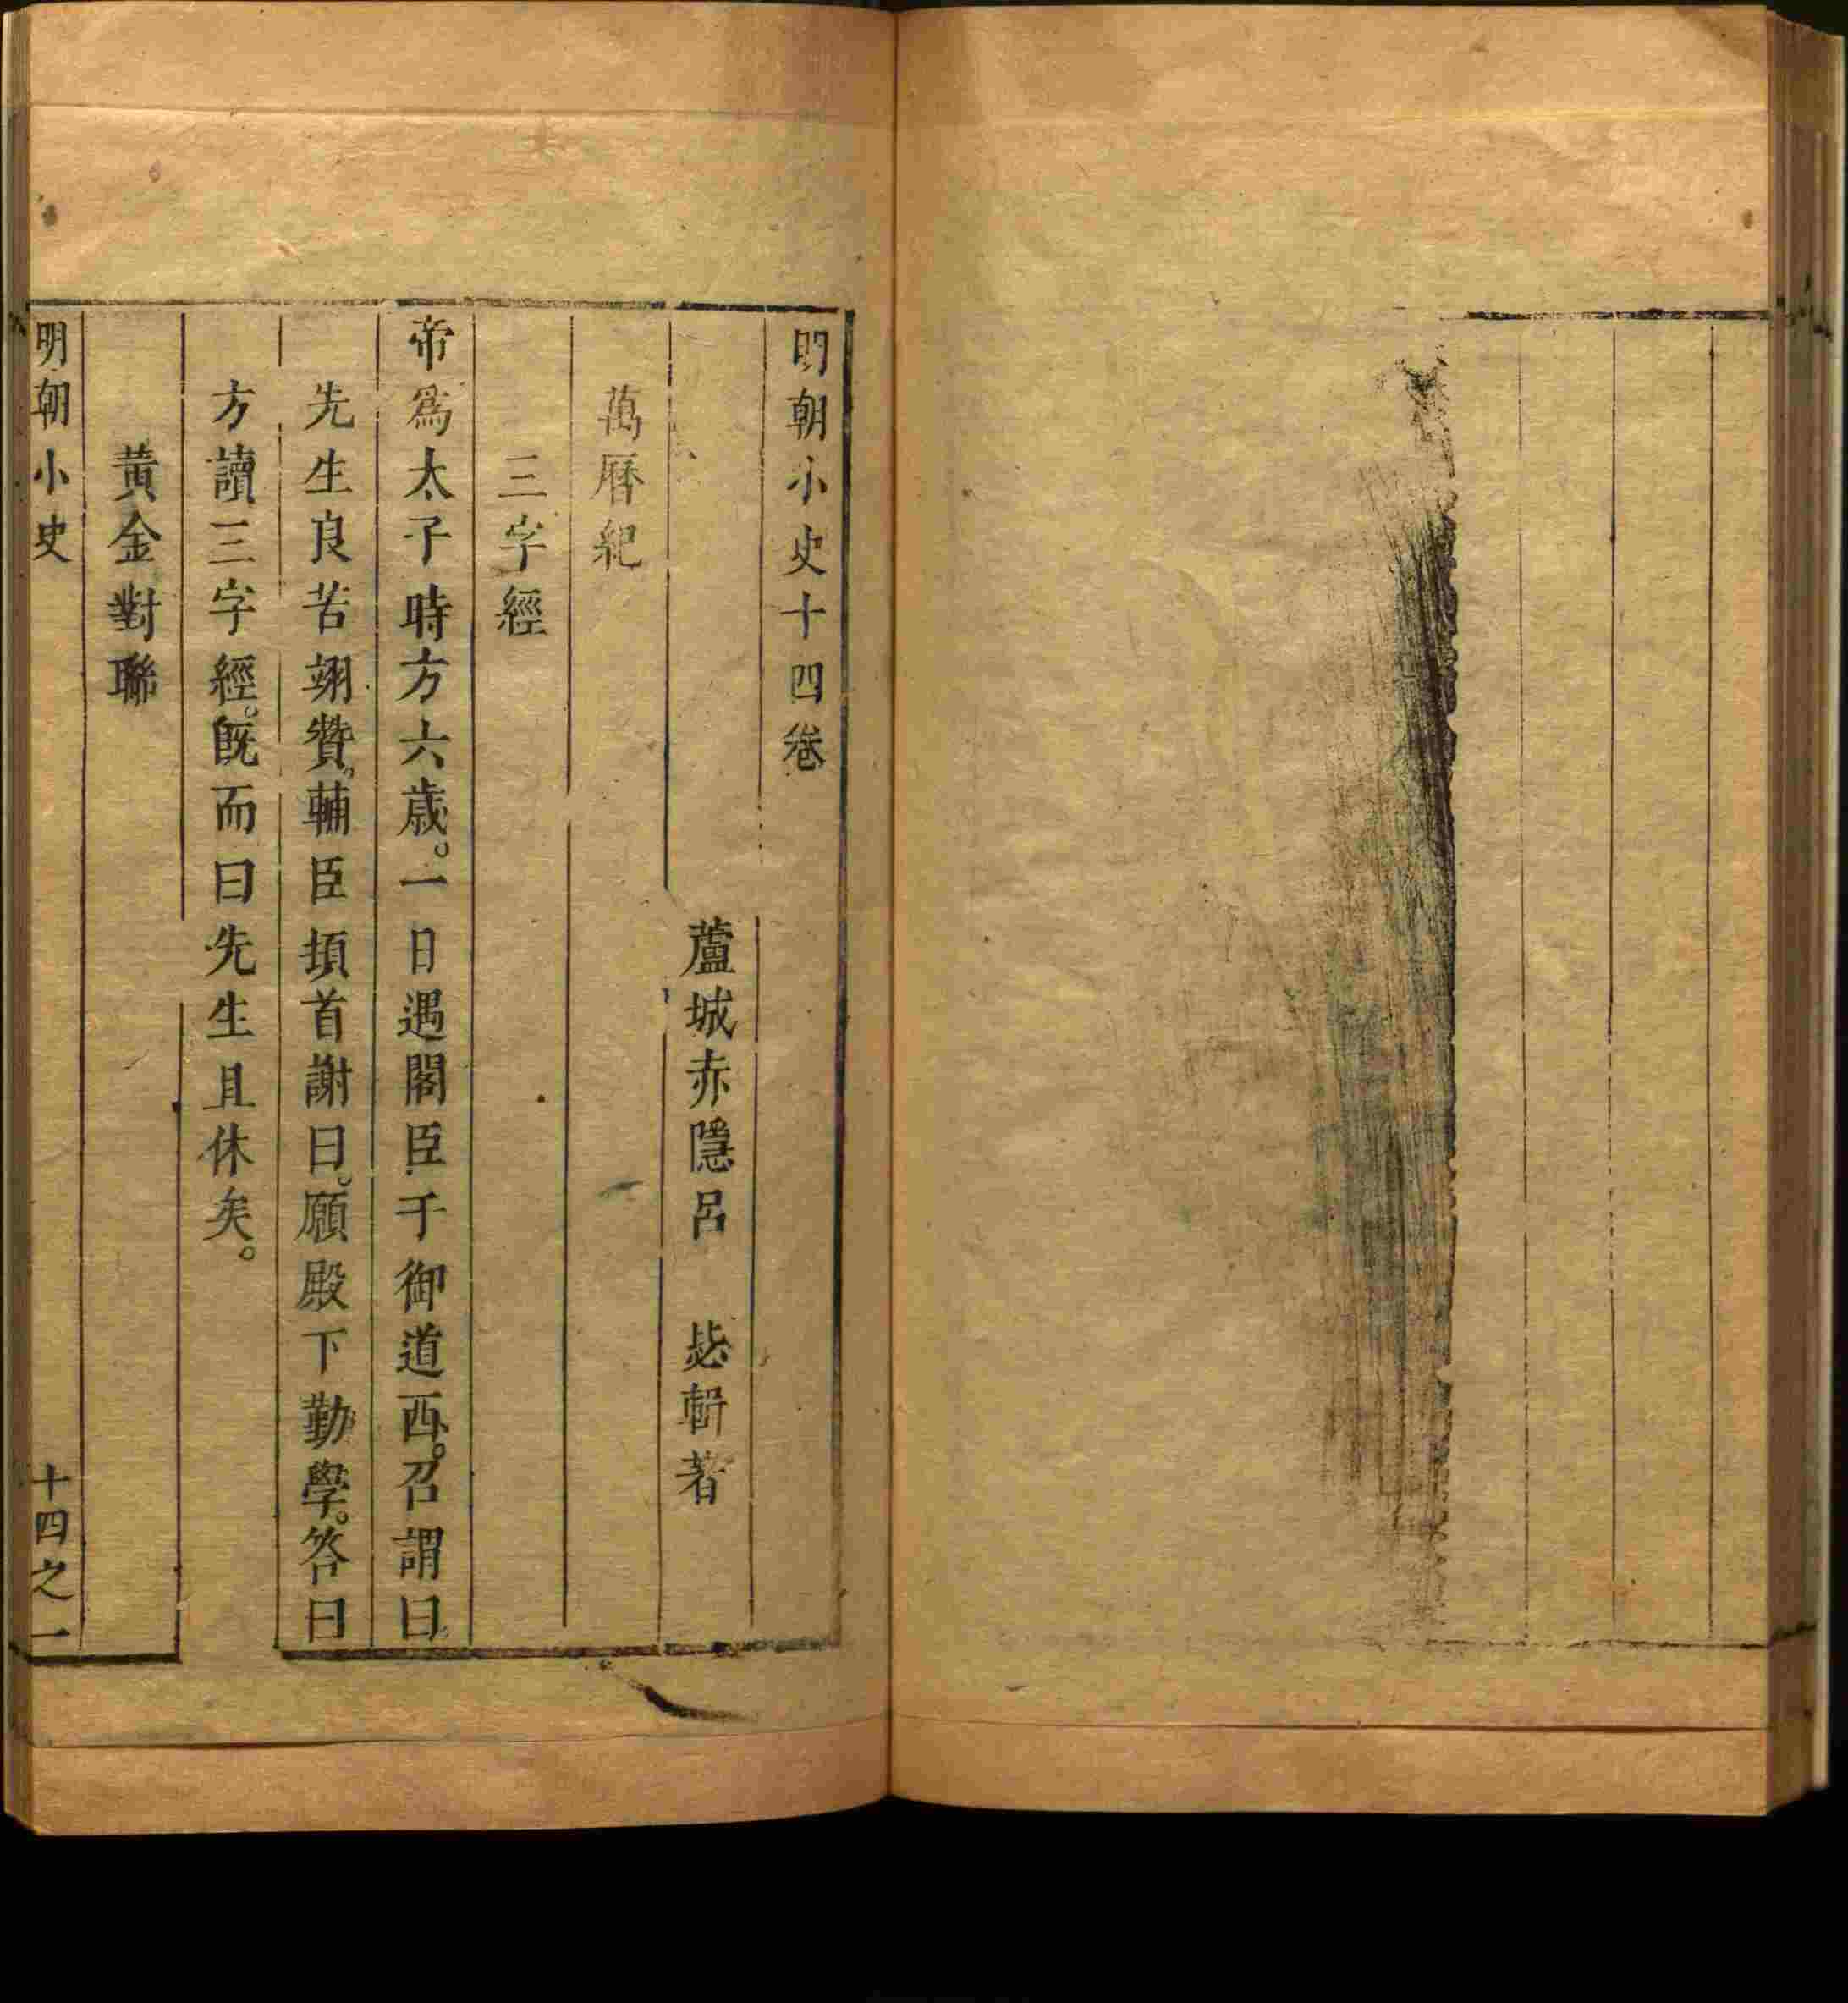 明朝小史十四卷
蘆城赤隱呂　毖輯著
萬曆紀
三字經
帝爲太子時方六歲。一日遇閣臣于御道西。召謂曰
先生良苦翊贊。輔臣頓首謝曰。願殿下勤學。答曰
方讀三字經。旣而曰先生且休矣。
黃金對聯
明朝小史
十四之一